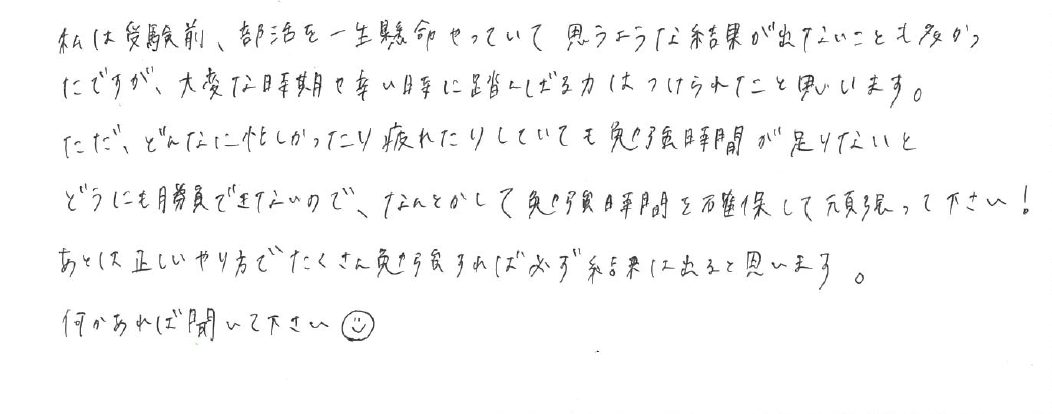 私は受験前、部活を一生懸命やっていて思うような結果が出ないことも多かっ
たですが、大変な時期や辛い時に踏んばる力はつけられたこと思います。
ただ、どんなに忙しかったり疲れたりしていても勉強時間が足りないと
どうにも勝負できないので、なんとかして勉強時間を確保して頑張って下さい！
あとは正しいやり方でたくさん勉強すれば必ず結果は出ると思います。
何かあれば聞いて下さい☺